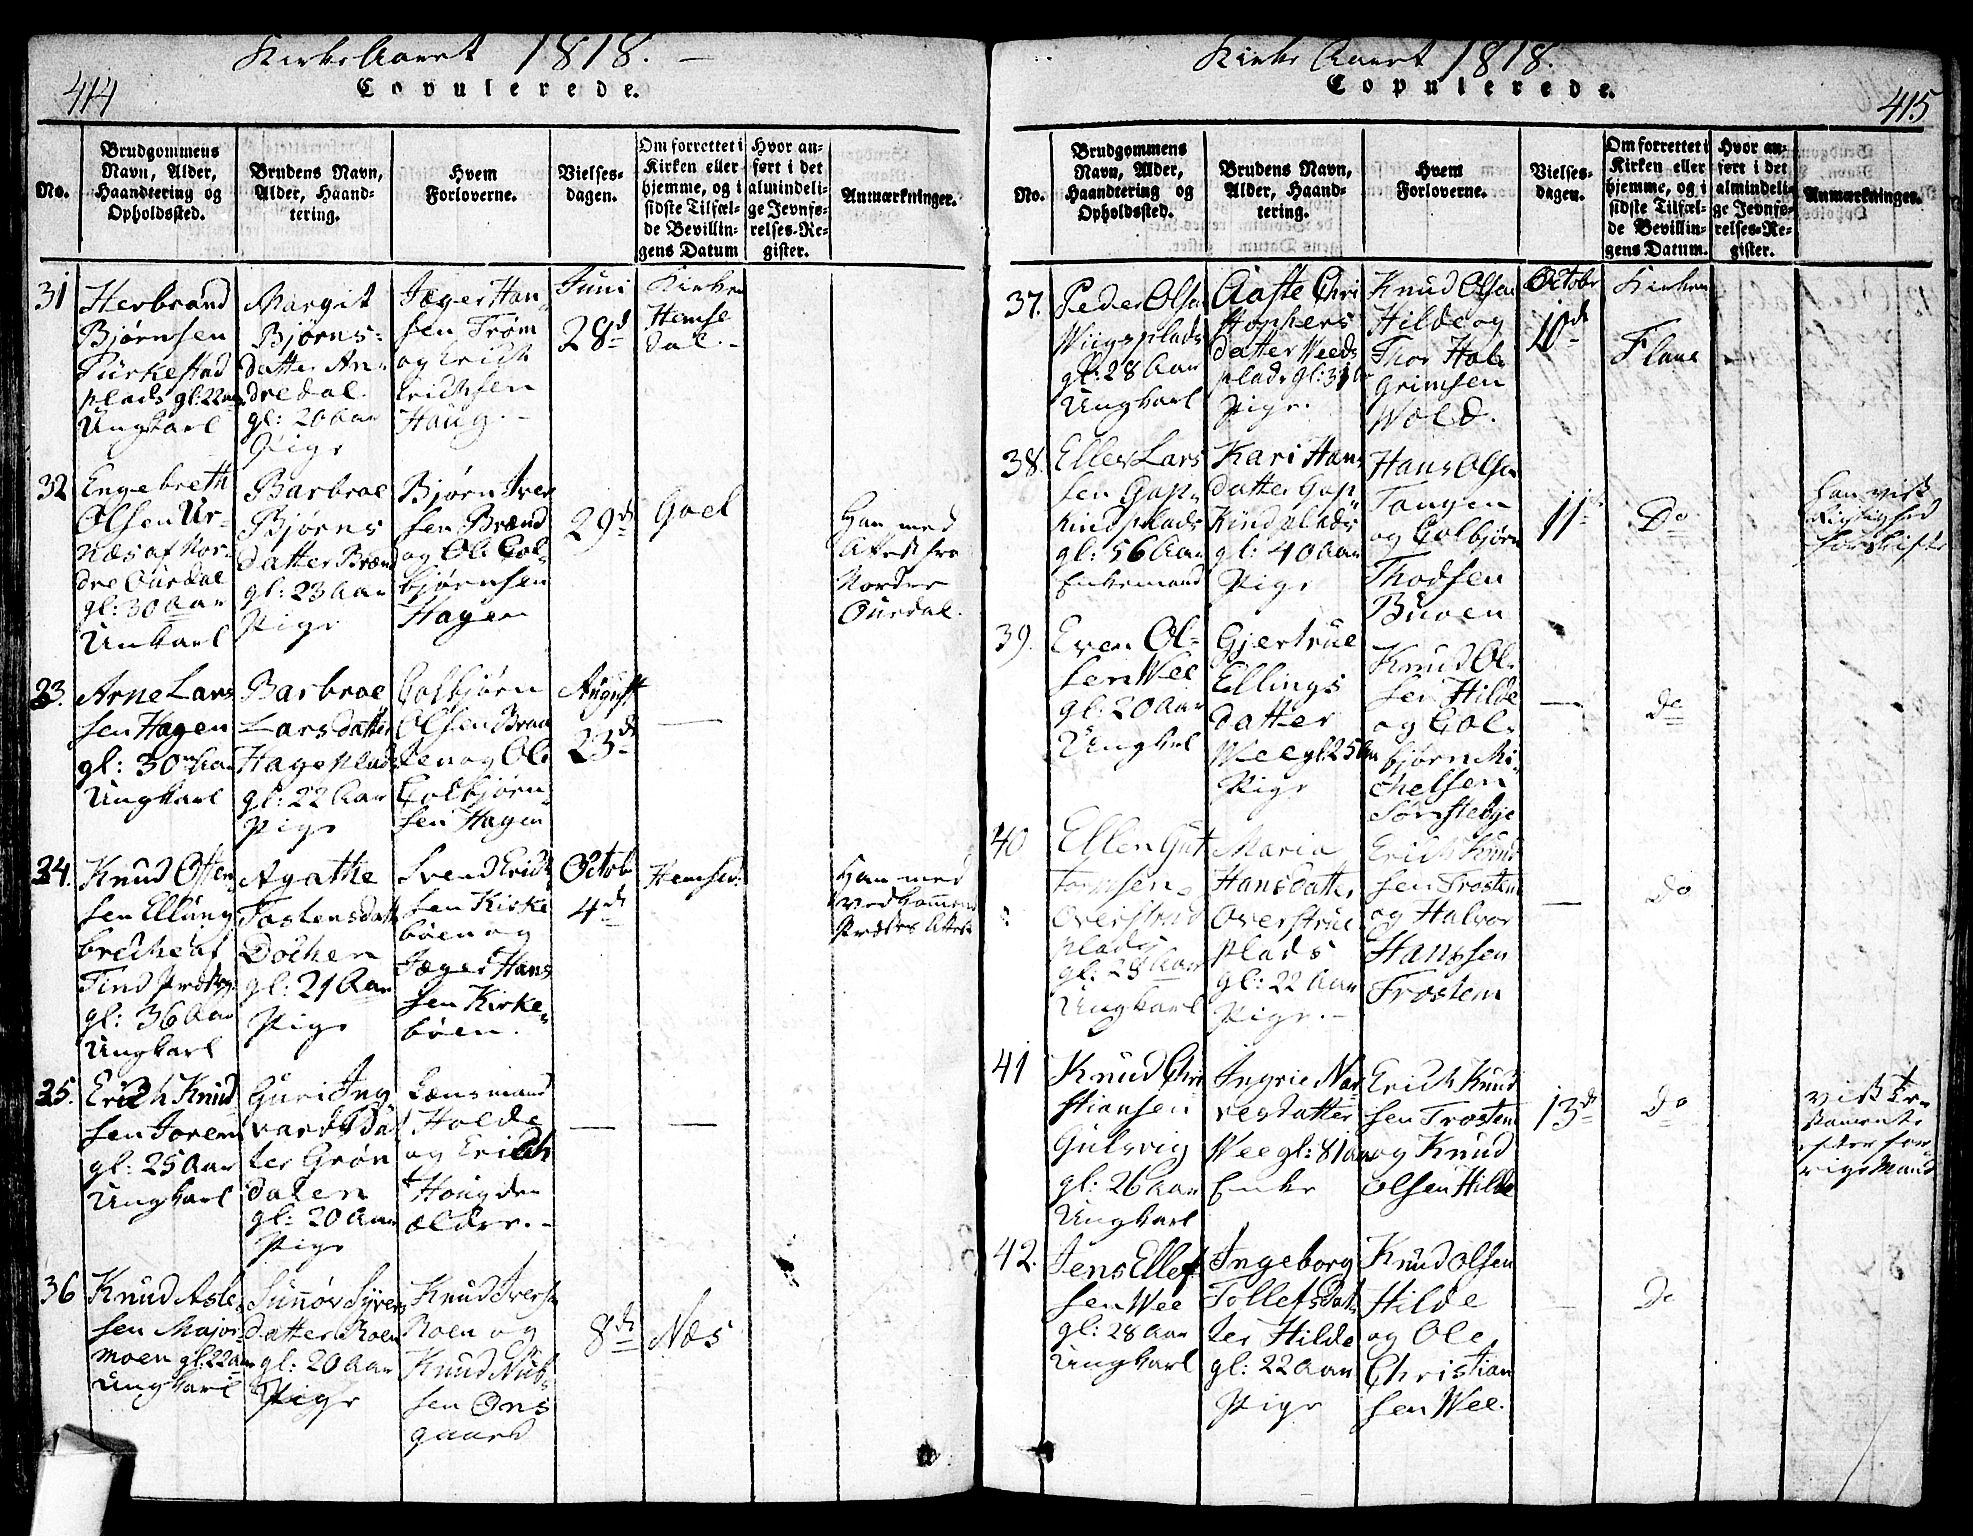 Kirke Aaret 1818. –
414
Copulerede.
No.
Brudgommens
Navn, Alder,
Haandtering og
Opholdssted.
Brudens Navn,
Alder, Haand-
tering.
Hvem
Forloverne.
Vielses-
dagen.
Om forrettet i
Kirken eller
hjemme, og i
sidste Tilfæl-
de Bevillin-
gens Datum
Hvor an-
ført i det
almindeli-
ge Jevnfø-
relses-Re-
gister.
Anmærkninger.
31
Herbrand
Bjørnsen
Türkestad
plads gl: 22 aar
Ungkarl
Margit
Bjørns-
datter An-
dredal
gl: 20 Aar
Pige
Jæger Han-
sen Trøm
og Erich
Erichsen
Haug. –
Juni
28d
Kirken
Hemse
dal. –
32
Engebreth
Olsen Ur-
næs af Nor-
dre Ourdal
gl: 30 Aar
Unkarl
Barbroe
Bjørns
datter Brænd
gl: 23 Aar
Pige
Bjørn Iver
sen Brænd
og Ole Gol-
bjørnsen
Hagen
29d
Goel
Han med
Attest fra
Nordre
Ourdal.
33.
Arne Lars
sen Hagen
gl: 30 Aar
Ungkarl
Barbroe
Larsdatter
Hageplads
gl: 22 Aar
Pige
Golbjørn
Olsen Braa
ten og Ole
Golbjørn-
sen Hagen
August
23d
—
34.
Knud Osten
sen Ellüng
brecke af
Tind Præstgj:
gl: 36 Aar
Ungkarl
Agathe
Tostensdatt
Dochen
gl: 21 Aar
Pige
Svend Erich
sen Kirke
böen og
Jæger Hans
sen Kirke-
böen.
Octob
4d
Hemsed:
Han med
vedkommend
Præstes Attest
35.
Erich Knud
sen Torem
gl: 25 Aar
Ungkarl
Guri Ing
vardsdat
ter Grøn
dalen
gl: 20 Aar
Pige
Lænsmand
Holde
og Erich
Houg den
ældre. –
—
—
36
Knud Asle
sen Major-
moen gl: 22 aar
Ungkarl
Sunøv Syvers
datter Roen
gl: 20 Aar
Pige
Knud Iversen
Roen og
Knud Nub-
sen Øns
gaard
8d
Næs
Kirke Aaret 1818.
415
Copulerede.
No.
Brudgommens
Navn, Alder,
Haandtering og
Opholdssted.
Brudens Navn,
Alder, Haand-
tering.
Hvem
Forloverne.
Vielses-
dagen.
Om forrettet i
Kirken eller
hjemme, og i
sidste Tilfæl-
de Bevillin-
gens Datum.
Hvor an-
ført i det
almindeli-
ge Jevnfø-
relses-Re-
gister.
Anmærkninger.
37.
Peder Olsen
Wiigsplads
gl: 28 Aar
Ungkarl
Aaste Chri
stophers
datter Weeds
plads gl: 31 Aar
Pige.
Knud Olsen
Hilde og
Thor Hal-
grimsen
Wold.
Octobr
10d
Kirken
Flaae
38.
Ellev Lars
sen Gap-
kindplads
gl: 56 Aar
Enkemand
Kari Hans
datter Gap
Kindplads
gl: 40 Aar
Pige
Hans Olsen
Tangen
og Golbjørn
Thodsen
Büven
11
Do
har vist
Rigtighed
for Skifte
39.
Even Ol-
sen Wee
gl: 20 Aar
Ungkarl
Gjertrue
Ellings
datter
Wee gl: 25 Aar
Pige
Knud Ol-
sen Hilde
og Gol-
bjørn Mi-
chelsen
Sørstebye
—
Do
40
Ellen Gut
tormsen
Overstrud
plads
gl: 28 Aar
Ungkarl
Maria
Hansdatter
Overstrue
plads
gl: 22 Aar
Pige. –
Erich Knud
sen Trostem
og Halvor
Hanssen
Trostem
—
Do
41
Knud Chri
stiansen
Gulsvig
gl: 26 Aar
Ungkarl
Ingrie Nar
vesdatter
Wee gl: 81 aar
Enke
Erich Knud
sen Trostem
og Knud
Olsen Hilde
13d
Do
vist
efter for
rige Mand
42.
Jens Ellef
sen Wee
gl: 28 Aar
Ungkarl
Ingeborg
Tollefsdat-
ter Hilde
gl: 22 Aar
Pige
Knud Olsen
Hilde
og Ole
Christian
sen Wee.
—
Do